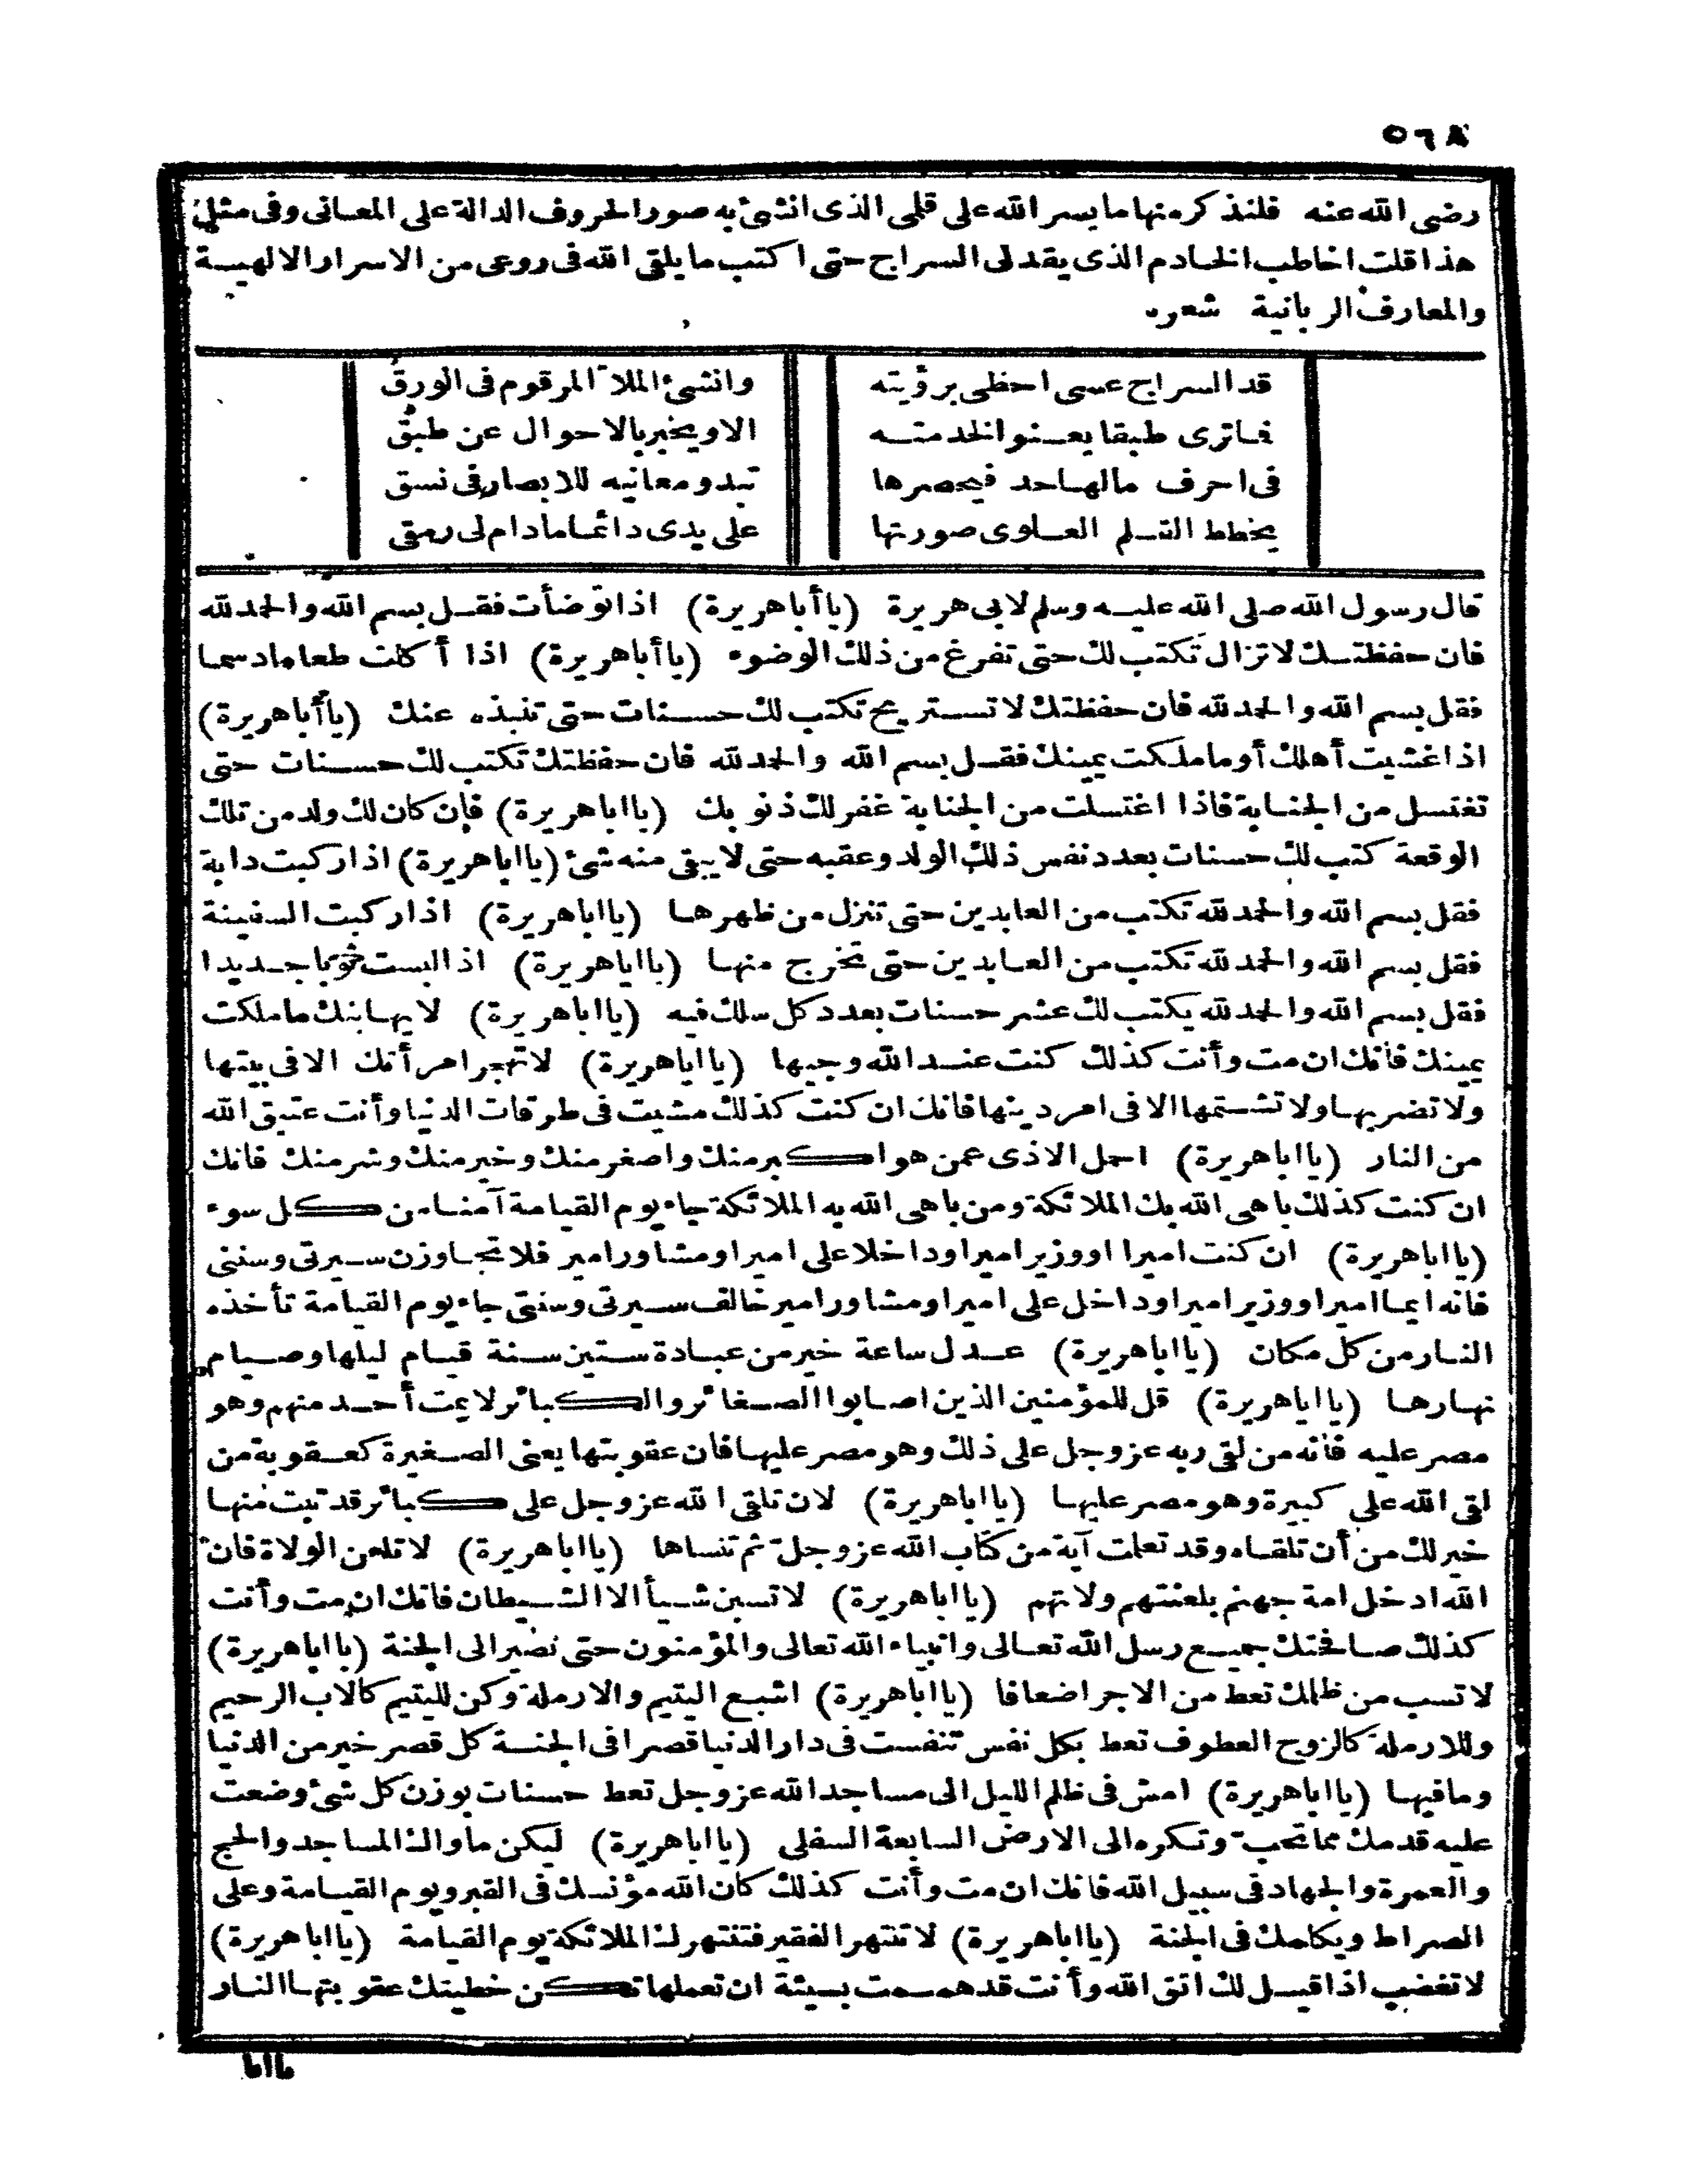 ٥٦٨
رضى الله عنه فلنذكر منها ما يسر الله على قلمى الذى انشئ به صور الحروف الدالة على المعانى وفى مثل
هذا قلت اخاطب الخادم الذى يقد لى السراج حتى اكتب ما يلقى الله فى روعى من الاسرار الالهية
والمعارف الربانية شعره
قد السراج عسى احظى برؤيته وانشئ الملأ المرقوم فى الورق
فما ترى طبقا يعنو الخدمته الا ويخبر بالاحوال عن طبق
فى احرف مالها حد فيحصرها تبدو معانيه للابصار فى نسق
يخطط القلم العلوى صورتها على يدى دائما مادام لى رمق
قال رسول الله صلى الله عليه وسلم لابى هريرة (يا أبا هريرة) اذا توضأت فقل بسم الله والحمد لله
فان حفظتك لا تزال تكتب لك حتى تفرغ من ذلك الوضوء (يا أبا هريرة) اذا أكلت طعاما دسما
فقل بسم الله والحمد لله فان حفظتك لا تستريح تكتب لك حسنات حتى تنبذه عنك (يا أبا هريرة)
اذا غشيت أهلك أو ما ملكت يمينك فقل بسم الله والحمد لله فان حفظتك تكتب لك حسنات حتى
تغتسل من الجنابة فاذا اغتسلت من الجنابة غفر لك ذنوبك (يا ابا هريرة) فان كان لك ولد من تلك
الوقعة كتب لك حسنات بعدد نفس ذلك الولد وعقبه حتى لا يبقى منه شئ (يا ابا هريرة) اذا ركبت دابة
فقل بسم الله والحمد لله تكتب من العابدين حتى تنزل من ظهرها (يا ابا هريرة) اذا ركبت السفينة
فقل بسم الله والحمد لله تكتب من العابدين حتى تخرج منها (يا ابا هريرة) اذا لبست ثوبا جديدا
فقل بسم الله والحمد لله يكتب لك عشر حسنات بعدد كل سلك فيه (يا ابا هريرة) لا يهابنك ما ملكت
يمينك فانك ان مت وأنت كذلك كنت عند الله وجيها (يا ابا هريرة) لا تهجر امرأتك الا فى بيتها
ولا تضربها ولا تشتمها الا فى امر دينها فانك ان كنت كذلك مشيت فى طرقات الدنيا وأنت عتيق الله
من النار (يا ابا هريرة) احمل الاذى عمن هو اكبر منك واصغر منك وخير منك وشر منك فانك
ان كنت كذلك باهى الله بك الملائكة ومن باهى الله به الملائكة جاء يوم القيامة آمنا من كل سوء
(يا ابا هريرة) ان كنت اميرا او وزير امير او داخلا على امير او مشاور امير فلا تجاوزن سيرتى وسنتى
فانه ايما امير او وزير امير او داخل على امير او مشاور امير خالف سيرتى وسنتى جاء يوم القيامة تأخذه
النار من كل مكان (يا ابا هريرة) عدل ساعة خير من عبادة ستين سنة قيام ليلها وصيام
نهارها (يا ابا هريرة) قل للمؤمنين الذين اصابوا الصغائر والكبائر لا يمت أحد منهم وهو
مصر عليه فانه من لقى ربه عز وجل على ذلك وهو مصر عليها فان عقوبتها يعنى الصغيرة كعقوبة من
لقى الله على كبيرة وهو مصر عليها (يا ابا هريرة) لان تلقى الله عز وجل على كبائر قد تبت منها
خير لك من أن تلقاه وقد تعلمت آية من كتاب الله عز وجل ثم تنساها (يا ابا هريرة) لا تلعن الولاة فان
الله ادخل امة جهنم بلعنتهم ولاتهم (يا ابا هريرة) لا تسبن شيأ الا الشيطان فانك ان مت وأنت
كذلك صافحتك جميع رسل الله تعالى وانبياء الله تعالى والمؤمنون حتى تصير الى الجنة (يا ابا هريرة)
لا تسب من ظلمك تعط من الاجر اضعافا (يا ابا هريرة) اشبع اليتيم والارملة وكن لليتيم كالاب الرحيم
وللارملة كالزوج العطوف تعط بكل نفس تنفست فى دار الدنيا قصرا فى الجنة كل قصر خير من الدنيا
وما فيها (يا ابا هريرة) امش فى ظلم الليل الى مساجد الله عز وجل تعط حسنات بوزن كل شئ وضعت
عليه قدمك مما تحب وتكره الى الارض السابعة السفلى (يا ابا هريرة) ليكن مأواك المساجد والحج
والعمرة والجهاد فى سبيل الله فانك ان مت وأنت كذلك كان الله مؤنسك فى القبر ويوم القيامة وعلى
الصراط ويكلمك فى الجنة (يا ابا هريرة) لا تنتهر الفقير فتنتهرك الملائكة يوم القيامة (يا ابا هريرة)
لا تغضب اذا قيل لك اتق الله وأنت قد هممت بسيئة ان تعملها تكن خطيئتك عقوبتها النار
يا ابا